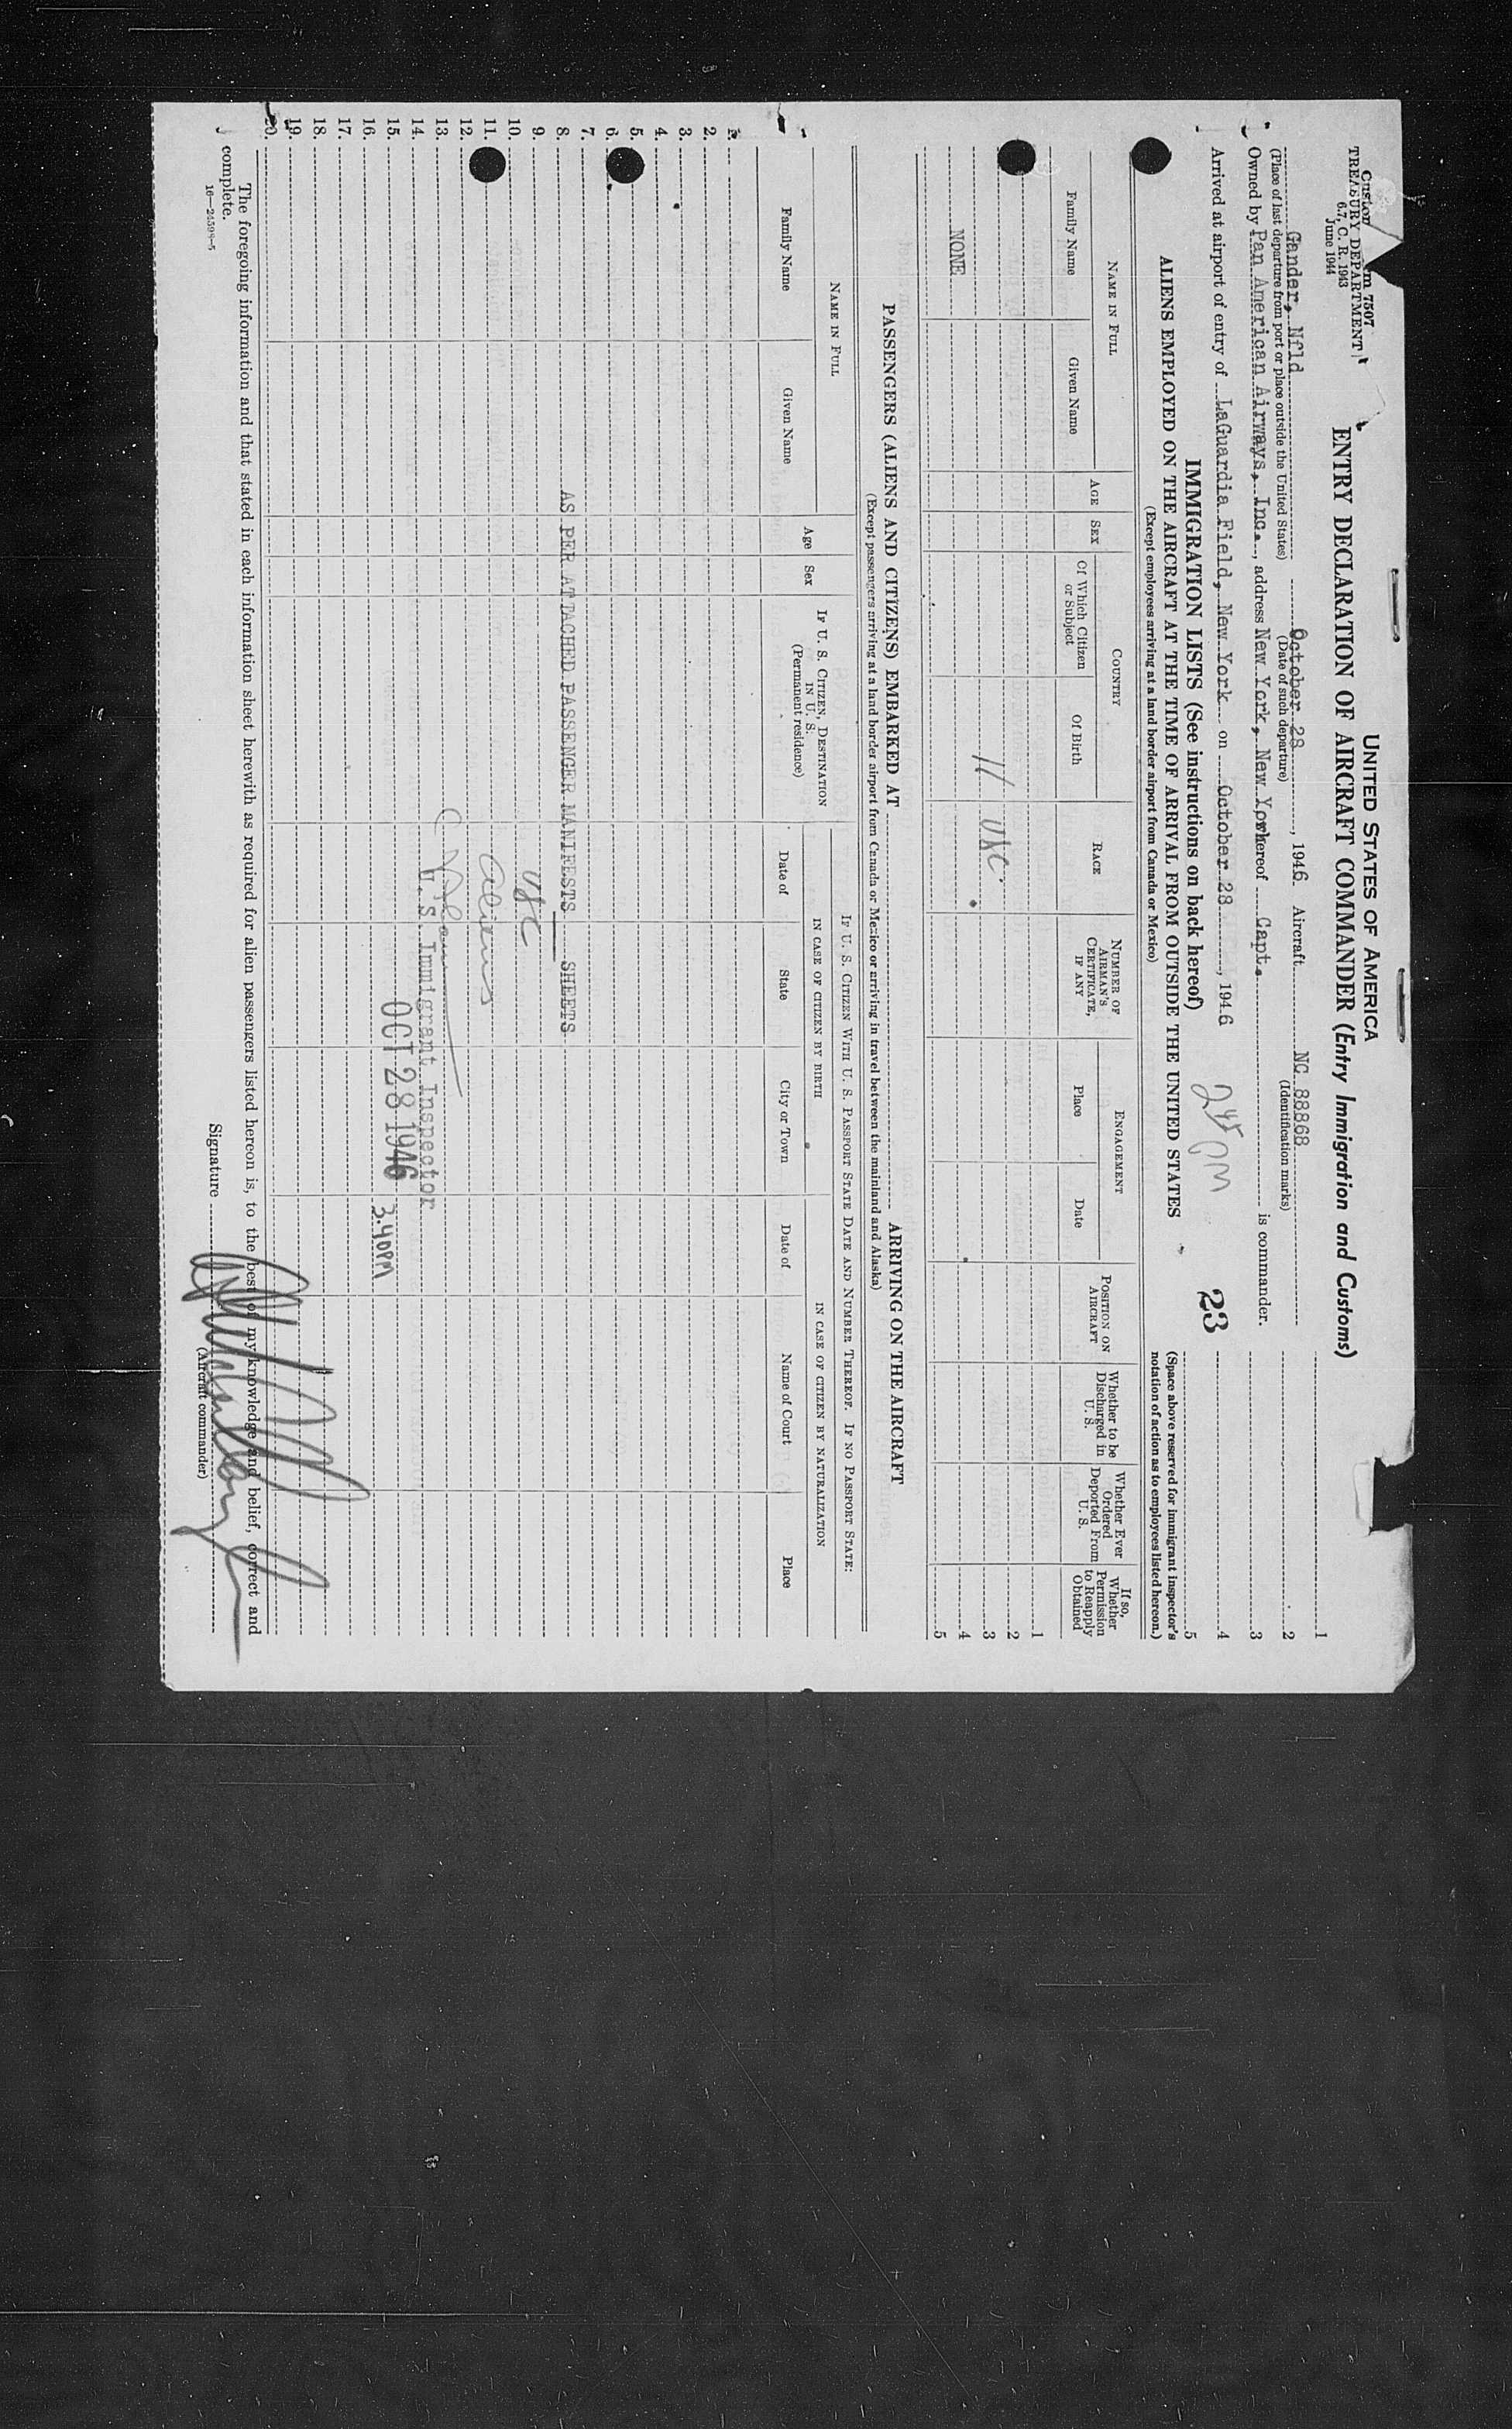 TREASURY DEPARTMENT
6.7, C. R. 1943
June 1944
UNITED STATES OF AMERICA
ENTRY DECLARATION OF AIRCRAFT COMMANDER (Entry Immigration and Customs)
Gander, Nfld October 28, 1946 Aircraft NC 88868
(Place of last departure from port or place outside the United States) (Date of such departure) (Identification marks)
Owned by Pan American Airways, Inc., address New York, New York whereof Capt. is commander.
Arrived at airport of entry of LaGuardia Field, New York on October 28, 1946 245 PM 23
IMMIGRATION LISTS (See instructions on back hereof)
ALIENS EMPLOYED ON THE AIRCRAFT AT THE TIME OF ARRIVAL FROM OUTSIDE THE UNITED STATES
(Except employees arriving at a land border airport from Canada or Mexico)
1
2
3
4
5
(Space above reserved for immigrant inspector's notation of action as to employees listed hereon.)
NAME IN FULL AGE SEX COUNTRY RACE NUMBER OF AIRMAN'S CERTIFICATE, IF ANY ENGAGEMENT POSITION ON AIRCRAFT Whether to be Discharged in U. S. Whether Ever Ordered Deported From U. S. If so, Whether Permission to Reapply Obtained
Family Name Given Name Of Which Citizen or Subject Of Birth Place Date
1
2
11 USC. 3
NONE 4
5
PASSENGERS (ALIENS AND CITIZENS) EMBARKED AT ARRIVING ON THE AIRCRAFT
(Except passengers arriving at a land border airport from Canada or Mexico or arriving in travel between the mainland and Alaska)
NAME IN FULL Age Sex IF U. S. CITIZEN, DESTINATION IN U. S. (Permanent residence) IF U. S. CITIZEN WITH U. S. PASSPORT STATE DATE AND NUMBER THEREOF. IF NO PASSPORT STATE:
IN CASE OF CITIZEN BY BIRTH IN CASE OF CITIZEN BY NATURALIZATION
Family Name Given Name Date of State City or Town Date of Name of Court Place
2.
3.
4.
5.
6.
7.
8. AS PER ATTACHED PASSENGER MANIFESTS SHEETS
9.
10. USC
11. aliens
12.
13.
14. U. S. Immigrant Inspector
15. OCT 28 1946 3.40PM
16.
17.
18.
19.
20.
The foregoing information and that stated in each information sheet herewith as required for alien passengers listed hereon is, to the best of my knowledge and belief, correct and
complete.
16—24598-5
Signature
(Aircraft commander)